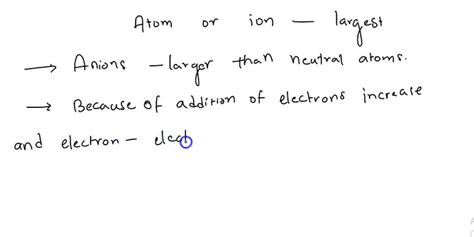 Atom or ion — largest
→ Anions — larger than neutral atoms.
→ Because of addition of electrons increase
and electron — elect